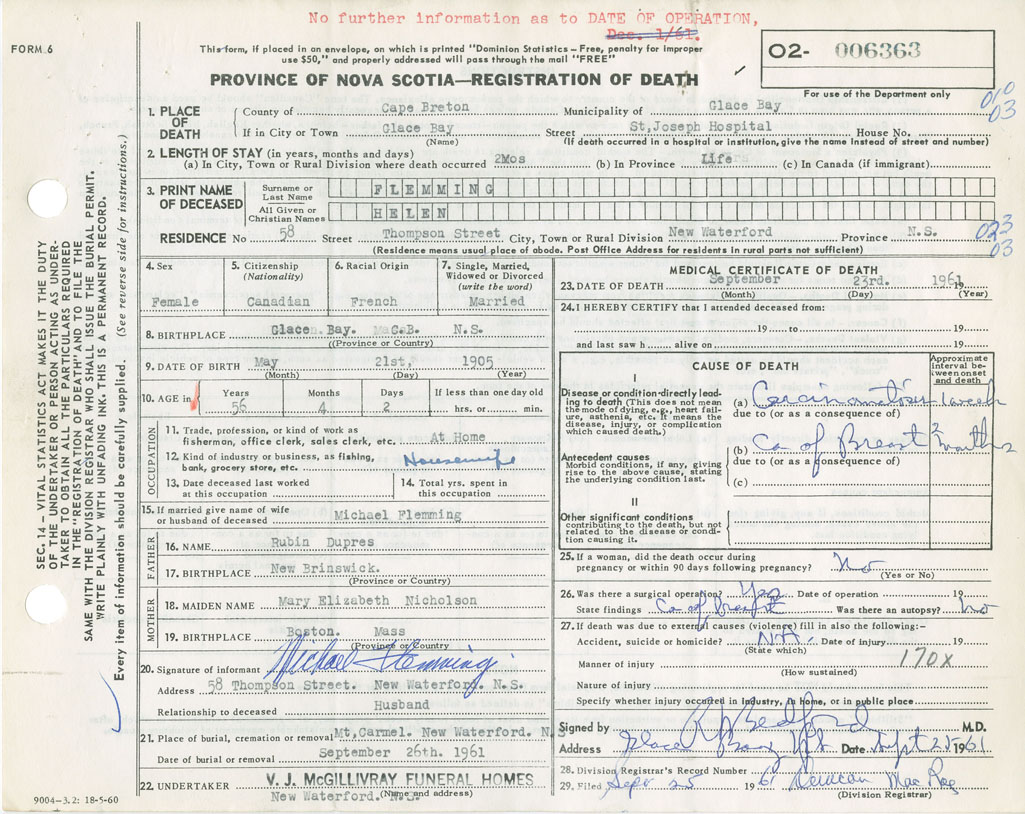 No further information as to DATE OF OPERATION,
Dec. 1/61.
FORM 6
This form, if placed in an envelope, on which is printed "Dominion Statistics – Free, penalty for improper
use $50," and properly addressed will pass through the mail "FREE"
O2- 006363
PROVINCE OF NOVA SCOTIA—REGISTRATION OF DEATH
For use of the Department only
010
03
1. PLACE OF DEATH
County of Cape Breton Municipality of Glace Bay
If in City or Town Glace Bay Street St,Joseph Hospital House No.
(Name) (If death occurred in a hospital or institution, give the name instead of street and number)
2. LENGTH OF STAY (in years, months and days)
(a) In City, Town or Rural Division where death occurred 2Mos (b) In Province Life (c) In Canada (if immigrant)
3. PRINT NAME OF DECEASED
Surname or Last Name FLEMMING
All Given or Christian Names HELEN
RESIDENCE No 58 Street Thompson Street City, Town or Rural Division New Waterford Province N.S.
023
03
(Residence means usual place of abode. Post Office Address for residents in rural parts not sufficient)
4. Sex
Female
5. Citizenship (Nationality)
Canadian
6. Racial Origin
French
7. Single, Married, Widowed or Divorced (write the word)
Married
8. BIRTHPLACE Glace Bay. C.B. N.S.
(Province or Country)
9. DATE OF BIRTH May 21st, 1905
(Month) (Day) (Year)
10. AGE in
Years 56
Months 4
Days 2
If less than one day old
hrs. or min.
OCCUPATION
11. Trade, profession, or kind of work as
fisherman, office clerk, sales clerk, etc. At Home
12. Kind of industry or business, as fishing,
bank, grocery store, etc. Housewife
13. Date deceased last worked
at this occupation
14. Total yrs. spent in
this occupation
15. If married give name of wife
or husband of deceased Michael Flemming
FATHER
16. NAME Rubin Dupres
17. BIRTHPLACE New Brinswick.
(Province or Country)
MOTHER
18. MAIDEN NAME Mary Elizabeth Nicholson
19. BIRTHPLACE Boston. Mass
(Province or Country)
20. Signature of informant Michael Flemming
Address 58 Thompson Street. New Waterford. N.S.
Relationship to deceased Husband
21. Place of burial, cremation or removal Mt,Carmel. New Waterford. N.S
Date of burial or removal September 26th. 1961
22. UNDERTAKER V. J. McGILLIVRAY FUNERAL HOMES
New Waterford. N.S. (Name and address)
9004-3.2: 18-5-60
MEDICAL CERTIFICATE OF DEATH
23. DATE OF DEATH September 23rd. 1961
(Month) (Day) (Year)
24. I HEREBY CERTIFY that I attended deceased from:
19 to 19
and last saw h alive on 19
CAUSE OF DEATH
Approximate interval between onset and death
I
Disease or condition-directly leading to death (This does not mean the mode of dying, e.g., heart failure, asthenia, etc. It means the disease, injury, or complication which caused death.)
(a) Carcinomatosis 1 week
due to (or as a consequence of)
Antecedent causes
Morbid conditions, if any, giving rise to the above cause, stating the underlying condition last.
(b) Ca of Breast 2 months
due to (or as a consequence of)
(c)
II
Other significant conditions
contributing to the death, but not related to the disease or condition causing it.
25. If a woman, did the death occur during
pregnancy or within 90 days following pregnancy? No
(Yes or No)
26. Was there a surgical operation? Yes Date of operation 19
State findings Ca of Breast Was there an autopsy? No
27. If death was due to external causes (violence) fill in also the following:–
Accident, suicide or homicide? N.A. Date of injury 19
(State which)
170X
Manner of injury
(How sustained)
Nature of injury
Specify whether injury occurred in Industry, in home, or in public place
Signed by R J Bedford M.D.
Address Glace Bay N.S. Date Sept 25 1961
28. Division Registrar's Record Number
29. Filed Sept 25 1961 Duncan MacRae
(Division Registrar)
SEC. 14 – VITAL STATISTICS ACT MAKES IT THE DUTY
OF THE UNDERTAKER OR PERSON ACTING AS UNDER-
TAKER TO OBTAIN ALL THE PARTICULARS REQUIRED
IN THE "REGISTRATION OF DEATH" AND TO FILE THE
SAME WITH THE DIVISION REGISTRAR WHO SHALL ISSUE THE BURIAL PERMIT.
WRITE PLAINLY WITH UNFADING INK. THIS IS A PERMANENT RECORD.
Every item of information should be carefully supplied. (See reverse side for instructions.)